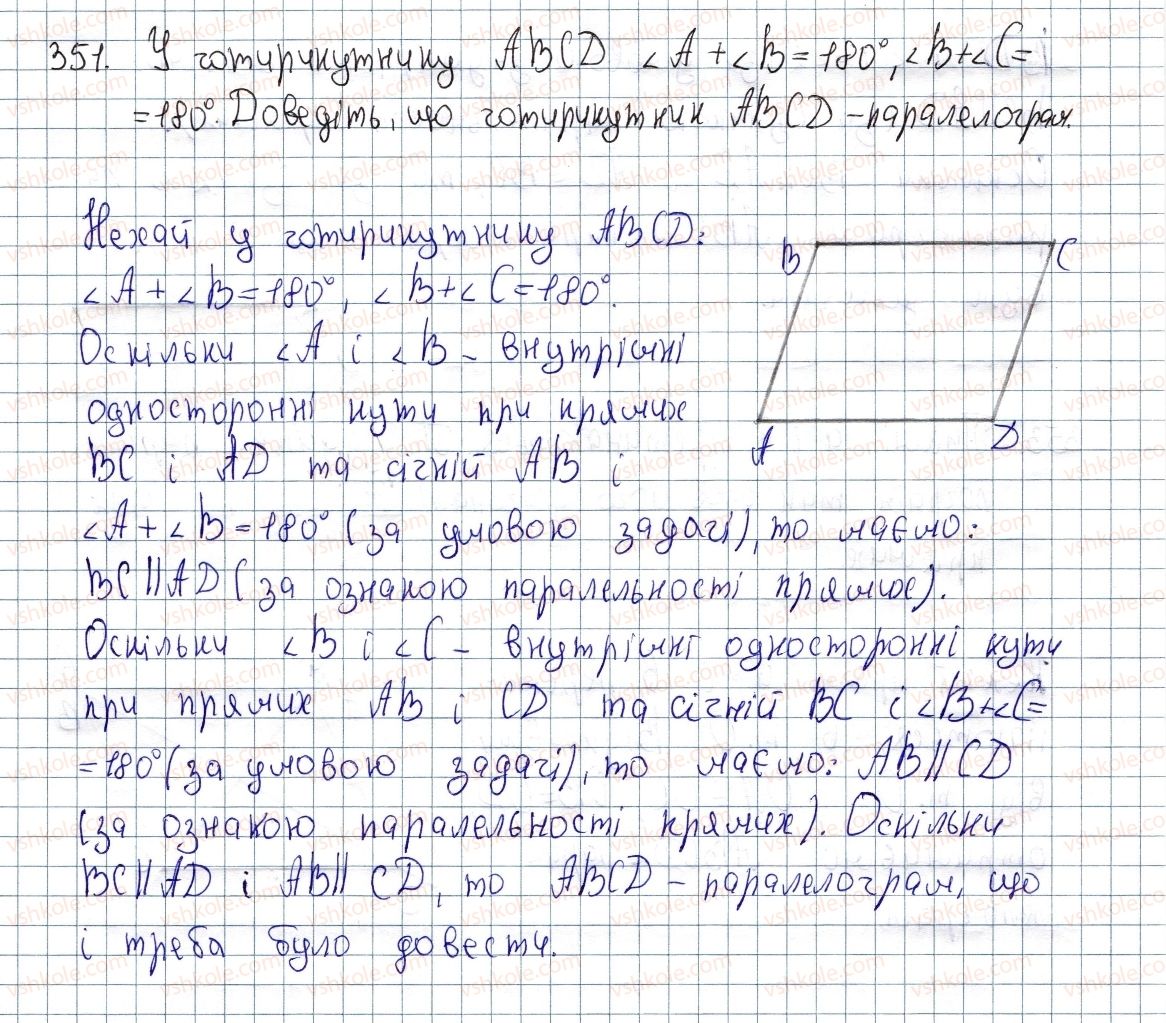 351. У чотирикутнику ABCD ∠A + ∠B = 180°, ∠B + ∠C =
= 180°. Доведіть, що чотирикутник ABCD - паралелограм.
Нехай у чотирикутнику ABCD:
∠A + ∠B = 180°, ∠B + ∠C = 180°.
Оскільки ∠A і ∠B - внутрішні
односторонні кути при прямих
BC і AD та січній AB і
∠A + ∠B = 180° (за умовою задачі), то маємо:
BC || AD (за ознакою паралельності прямих).
Оскільки ∠B і ∠C - внутрішні односторонні кути
при прямих AB і CD та січній BC і ∠B + ∠C =
= 180° (за умовою задачі), то маємо: AB || CD
(за ознакою паралельності прямих). Оскільки
BC || AD і AB || CD, то ABCD - паралелограм, що
і треба було довести.
B
C
A
D
vshkole.com